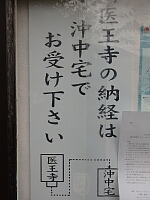 医王寺の納経は
沖中宅で
お受け下さい
医王寺
沖中宅